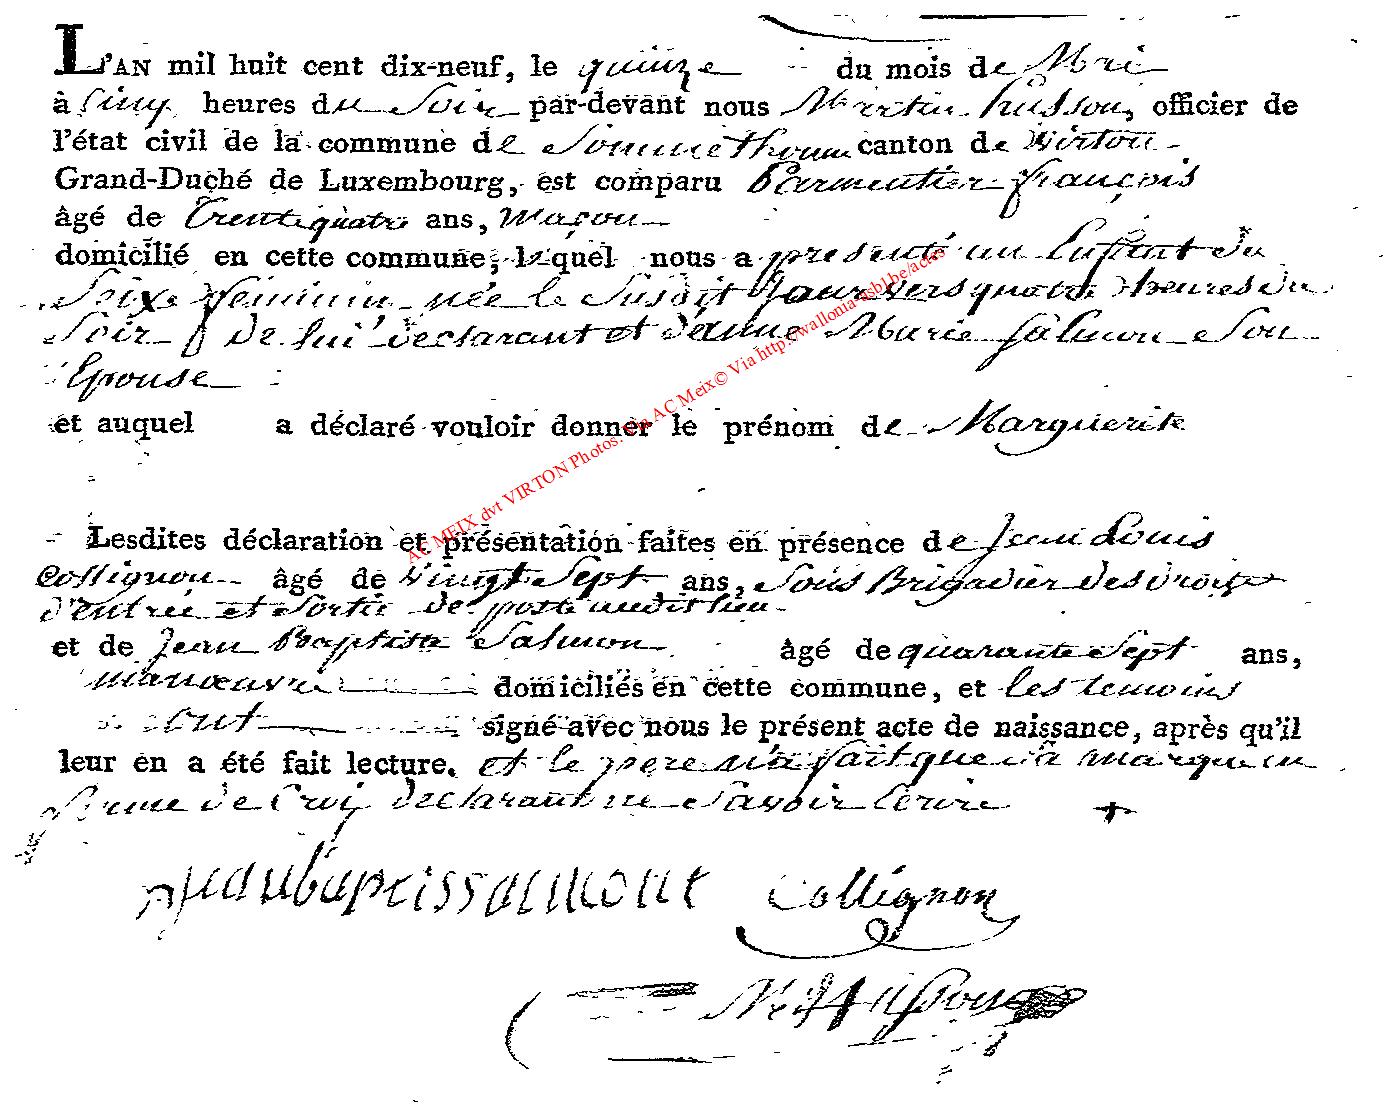 L'AN mil huit cent dix-neuf, le quinze du mois de Mai
à Cinq heures du Soir par-devant nous Martin husson, officier de
l'état civil de la commune de Sommethonne canton de Virton
Grand-Duché de Luxembourg, est comparu Parmentier françois
âgé de trente quatre ans, maçon
domicilié en cette commune, lequel nous a présenté un Enfant du
Seixe feminin née le Susdit Jour vers quatre heures du
Soir de lui déclarant et d'anne Marie Salmon Son
Epouse
et auquel a déclaré vouloir donner le prénom de Marguerite
AC MEIX dvt VIRTON Photos: Via AC Meix© Via http://wallonia-asbl.be/actes
Lesdites déclaration et présentation faites en présence de Jean Louis
Collignon âgé de Vingt Sept ans, Sous Brigadier des Droits
d'entrée et Sortie de poste audit lieu
et de Jean Baptiste Salmon âgé de quarante Sept ans,
manœuvre domiciliés en cette commune, et les temoins
ont signé avec nous le présent acte de naissance, après qu'il
leur en a été fait lecture. et le pere n'a fait que sa marque en
forme de Croix declarant ne Savoir Ecrire +
Collignon